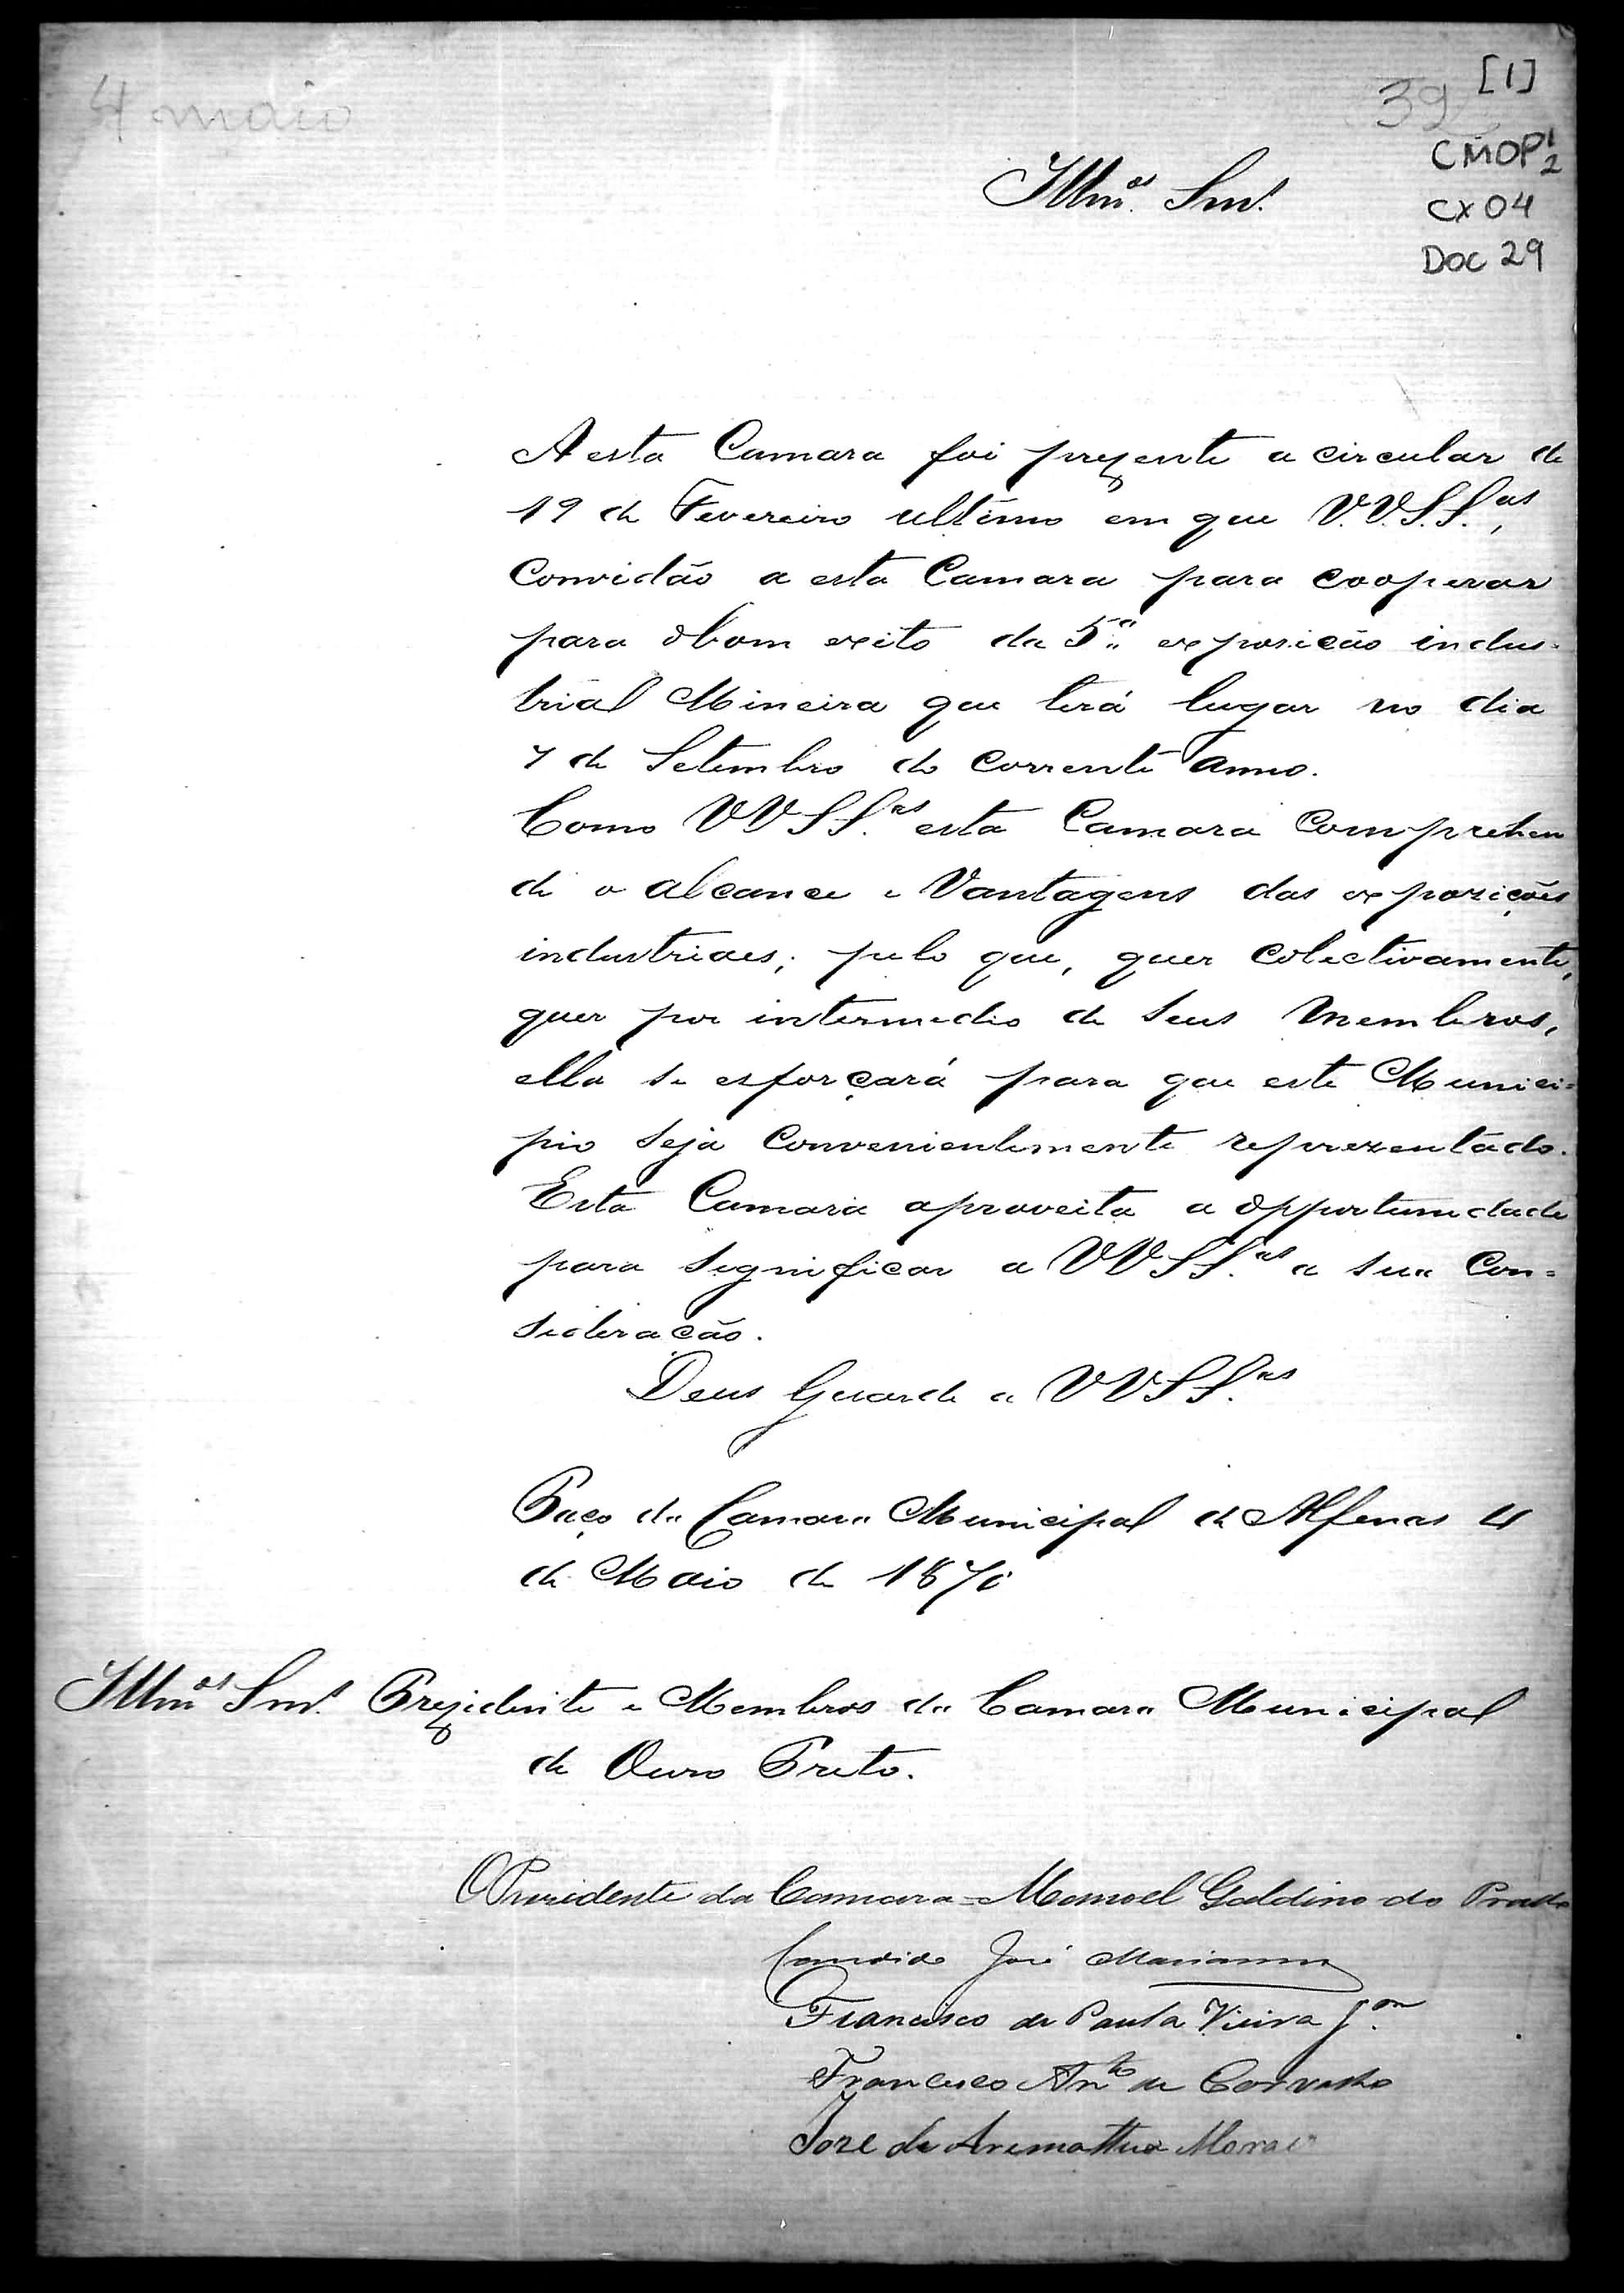 4 maio
39 [1]
CMOP 1/2
CX 04
Doc 29
Illmos. Snrs.
A esta Camara foi prezente a circular de
19 de Fevereiro ultimo em que V.V.S.S.as,
Convidão a esta Camara para cooperar
para o bom exito da 5.a exposicão indus-
trial Mineira que terá lugar no dia
7 de Setembro do corrente anno.
Como VVSS.as esta Camara Comprehen
de o alcance e Vantagens das exposições
industriaes; pelo que, quer colectivamente,
quer por intermedio de seus Membros,
ella se esforçará para que este Munici=
pio seja Convenientemente reprezentado.
Esta Camara aproveita a opportunidade
para significar a VVSS.as a sua Con=
sideracão.
Deus Guarde a VVSS.as
Paço da Camara Municipal de Alfenas 4
de Maio de 1870
Illmos Snrs. Prezidente e Membros da Camara Municipal
de Ouro Preto.
O Prezidente da Camara = Manoel Galdino do Prado
Candido José Marianno
Francisco de Paula Vieira J.or
Francisco Anto de Carvalho
Joze de Arimathea Moraes